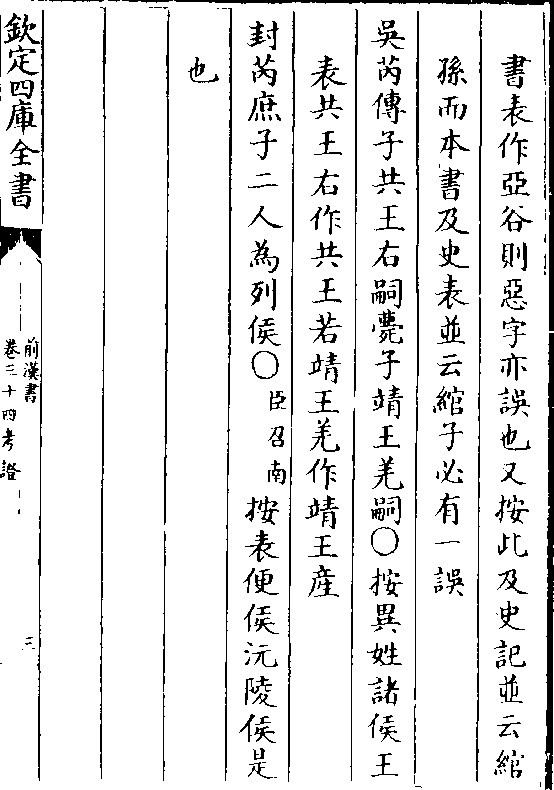 書表作亞谷則惡字亦誤也又按此及史記並云綰
孫而本書及史表並云綰子必有一誤
吳芮傳子共王右嗣薨子靖王羌嗣○按異姓諸侯王
表共王右作共王若靖王羌作靖王産
封芮庶子二人為列侯○臣召南按表便侯沅陵侯是
也
欽定四庫全書
前漢書
卷三十四考證
三